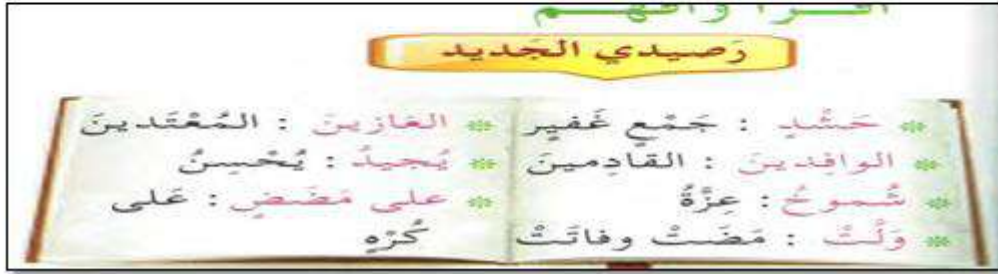 أقرأ وأفهم
رَصيدي الجَديد
* حَشْدٍ : جَمْعٍ غَفيرٍ
* الوافِدينَ : القادِمينَ
* شُموخٌ : عِزَّةٌ
* وَلَّتْ : مَضَتْ وفاتَتْ
* الغازينَ : المُعْتَدينَ
* يُجيدُ : يُحْسِنُ
* على مَضَضٍ : عَلى
كُرْهٍ